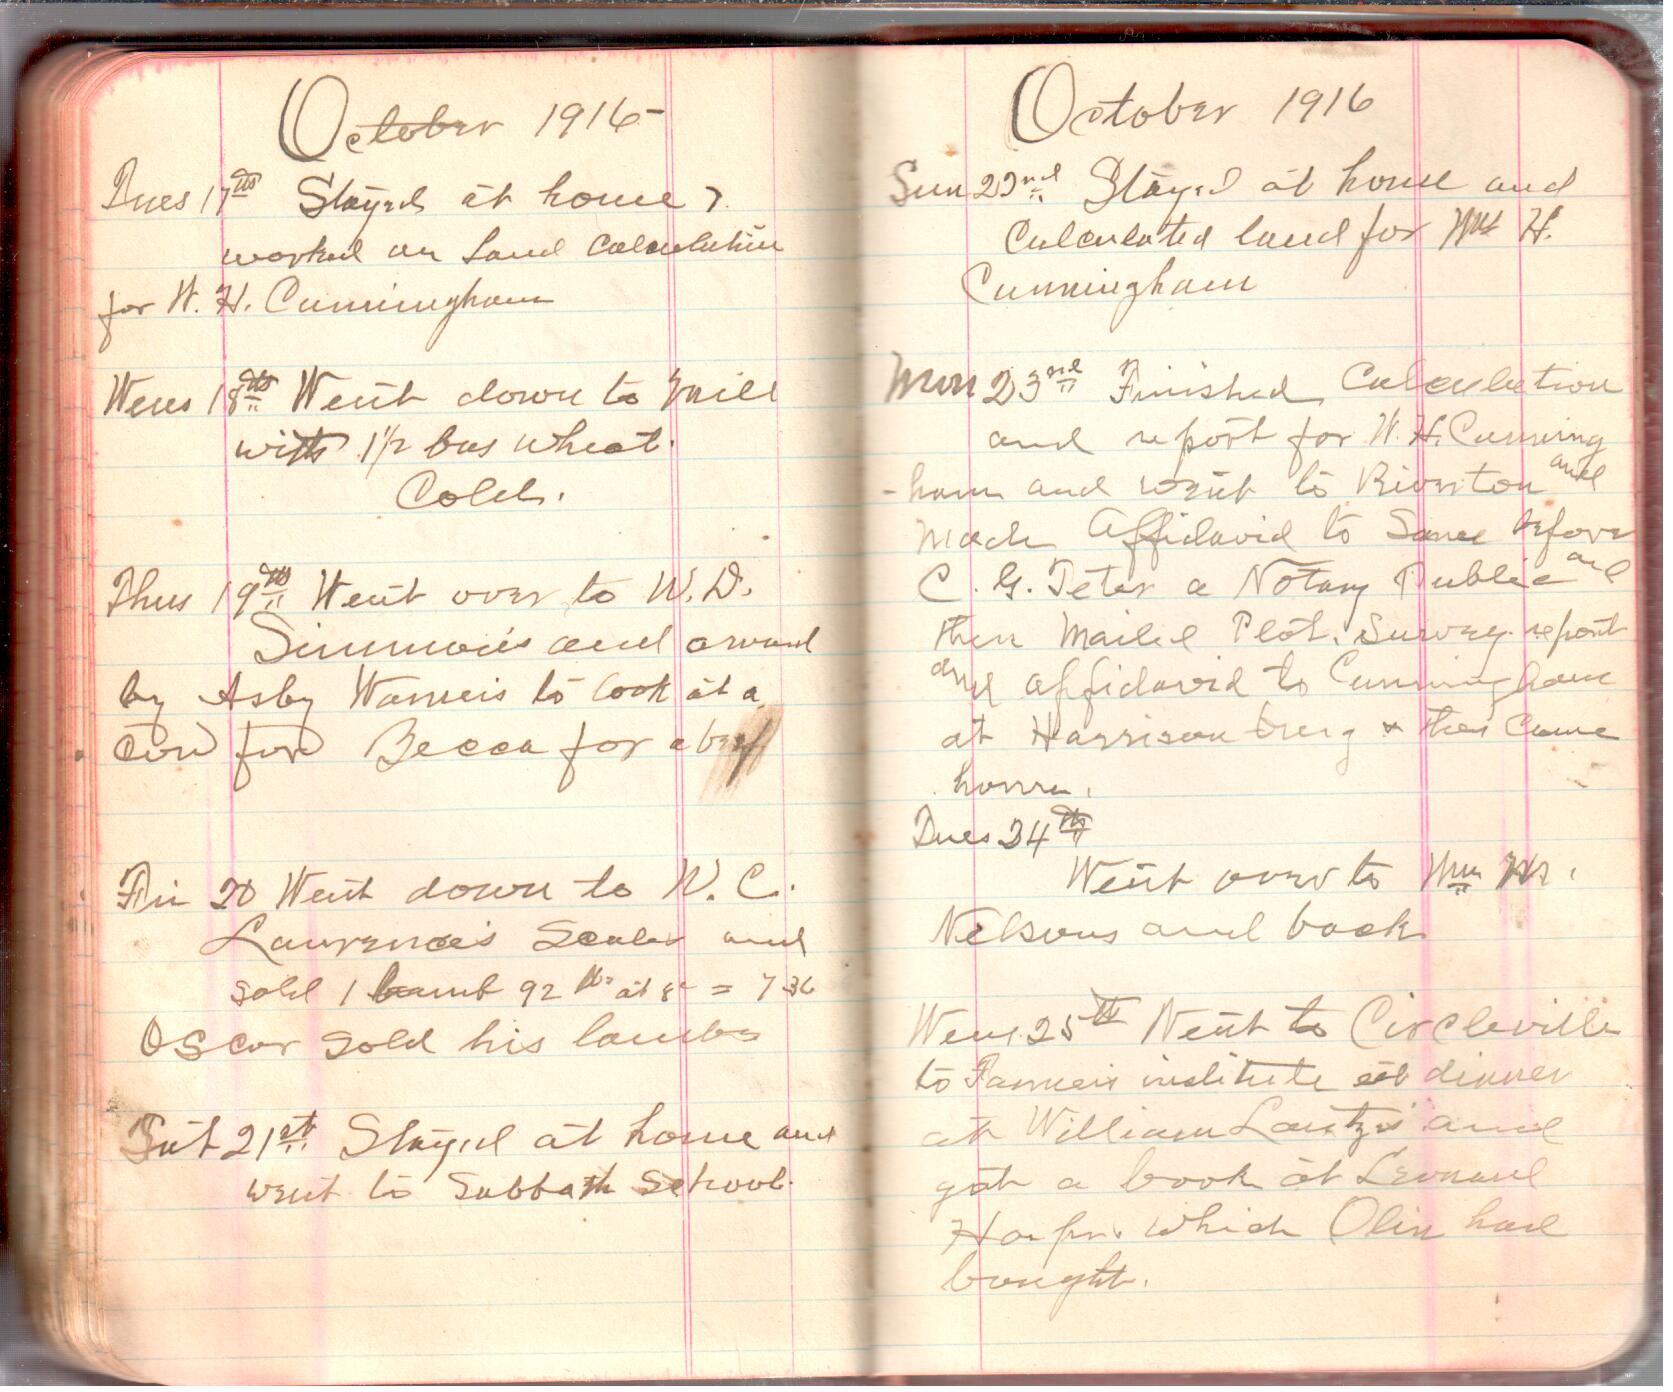 October 1916
Tues 17th Stayed at home &
worked on Land Calculation
for W. H. Cunningham
Wens 18th Went down to mill
with 1 1/2 bus wheat.
Cold.
Thus 19th Went over to W. D.
Simmons and around
by Asby Warners to look at a
cow for Becca for a beef
Fri 20 Went down to W. C.
Lawrence's Scales and
sold 1 lamb 92 lbs at 8¢ = 7 36
Oscar sold his lambs
Sat 21st Stayed at home and
went to Sabbath School.
October 1916
Sun 22nd Stayed at home and
Calculated land for Wm H.
Cunningham
Mon 23rd Finished Calculation
and report for W. H. Cunning
-ham and went to Riverton and
made Affidavid to Same before
C. G. Teter a Notary Public and
then Mailed Plot, Survey report
and affidavid to Cunningham
at Harrisonburg & then Came
home.
Tues 24th
Went over to Wm
Nelsons and back
Wens 25th Went to Circleville
to Farmers institute eat dinner
at William Lantz's and
got a book at Leonard
Harper which Olin had
bought.